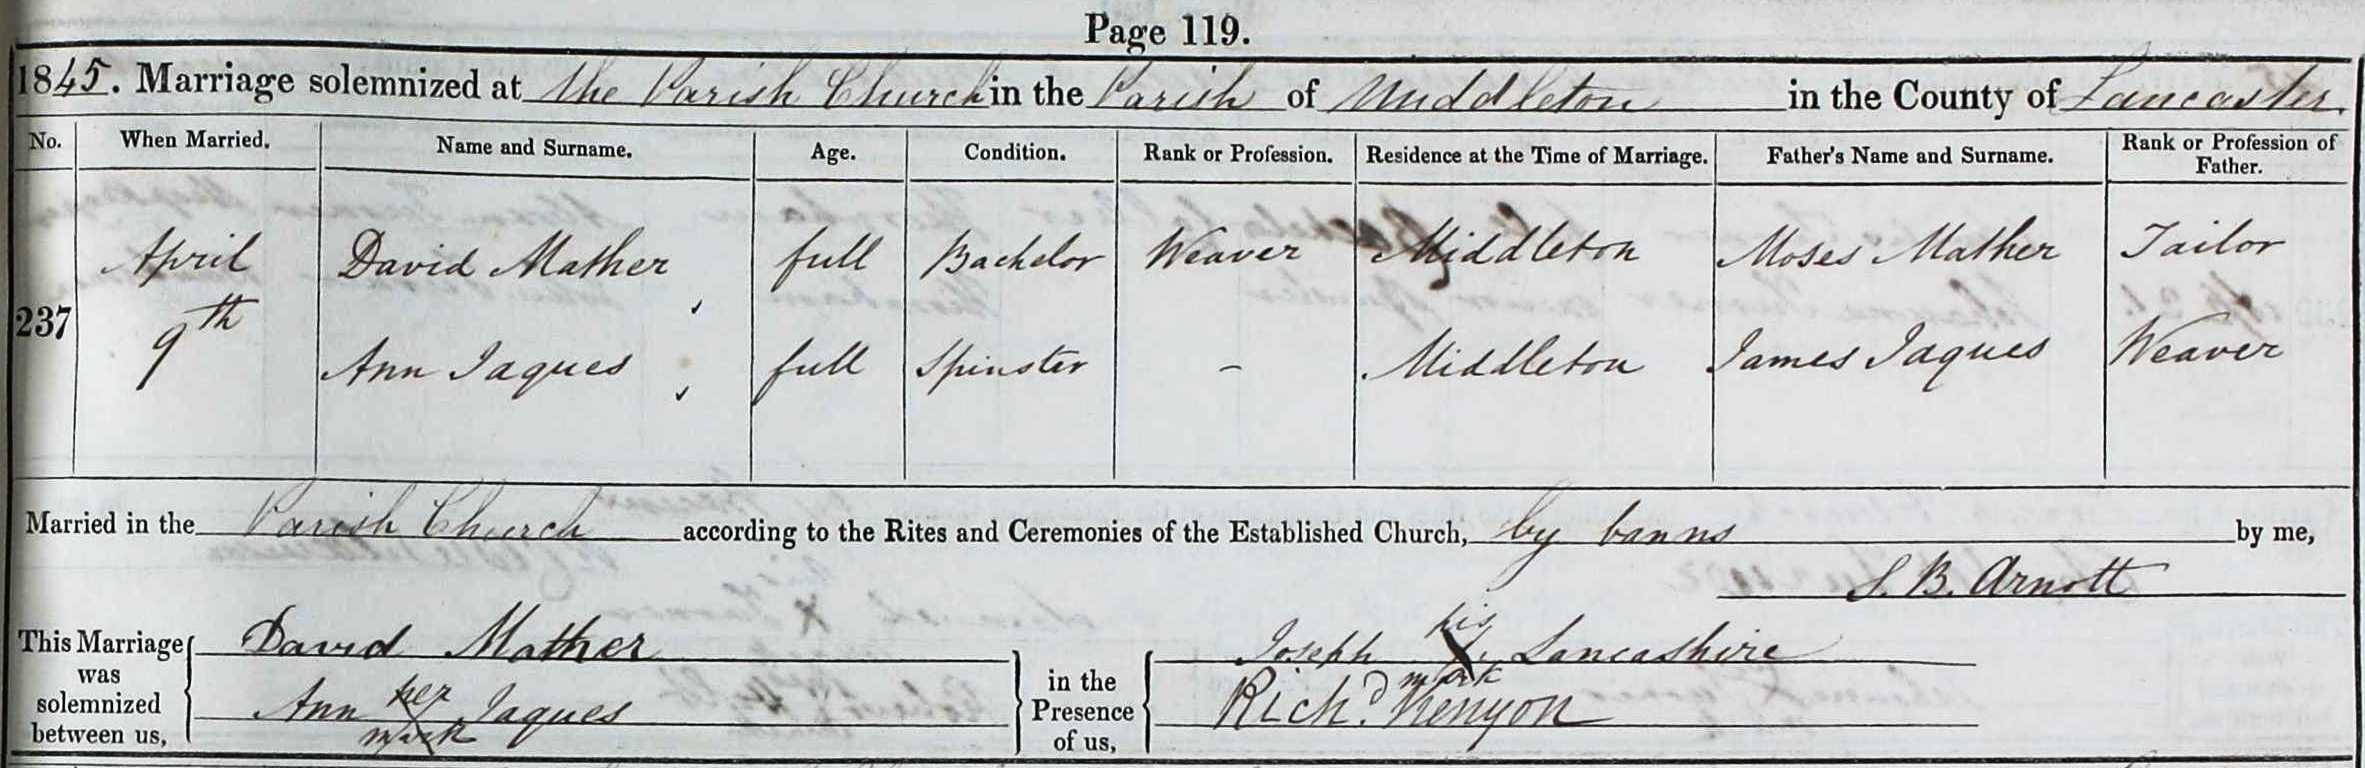 Page 119.
1845. Marriage solemnized at the Parish Church in the Parish of Middleton in the County of Lancaster.
No. When Married. Name and Surname. Age. Condition. Rank or Profession. Residence at the Time of Marriage. Father's Name and Surname. Rank or Profession of Father.
237 April 9th
David Mather, full Bachelor Weaver Middleton Moses Mather Tailor
Ann Jaques, full Spinster - Middleton James Jaques Weaver
Married in the Parish Church according to the Rites and Ceremonies of the Established Church, by banns by me,
S. B. Arnott
This Marriage was solemnized between us,
David Mather
Ann her X mark Jaques
in the Presence of us,
Joseph his X mark Lancashire
Richd. Kenyon